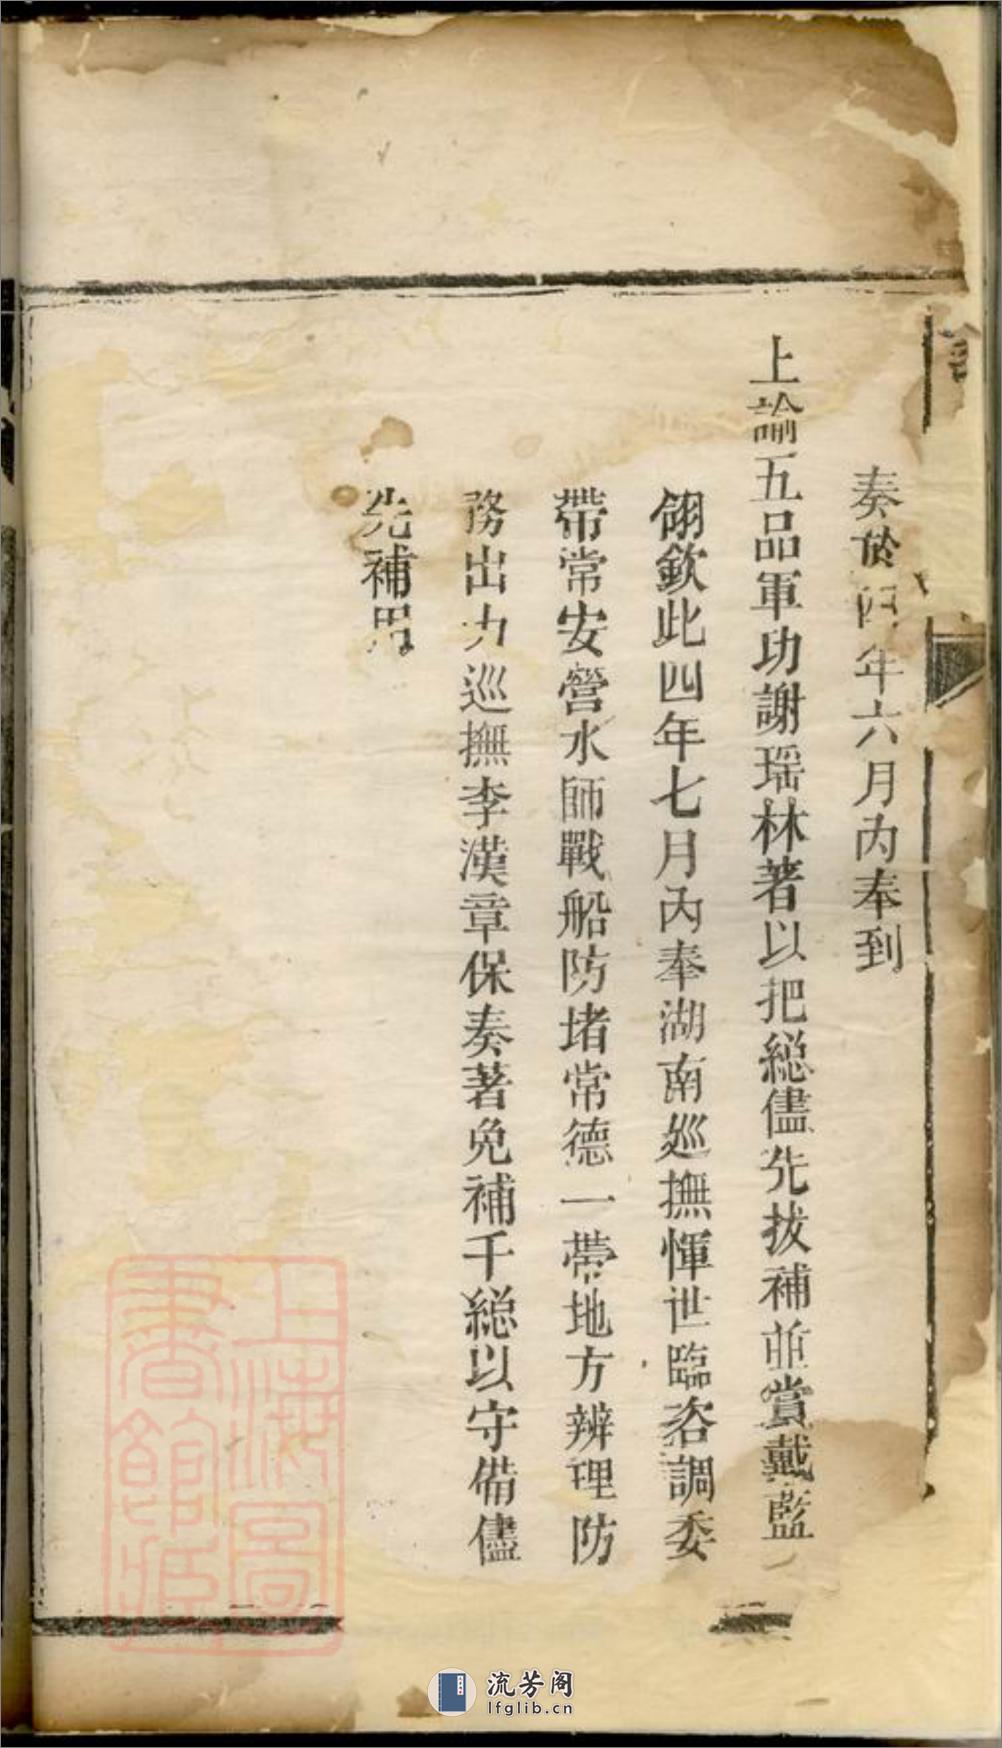 奏於四年六月內奉到
上諭五品軍功謝瑶林著以把総儘先拔補並賞戴藍
翎欽此四年七月內奉湖南廵撫惲世臨咨調委
帶常安營水師戰船防堵常德一帶地方辨理防
務出力巡撫李漢章保奏著免補千総以守備儘
先補用
上海圖
書館藏
流芳阁
lfglib.cn